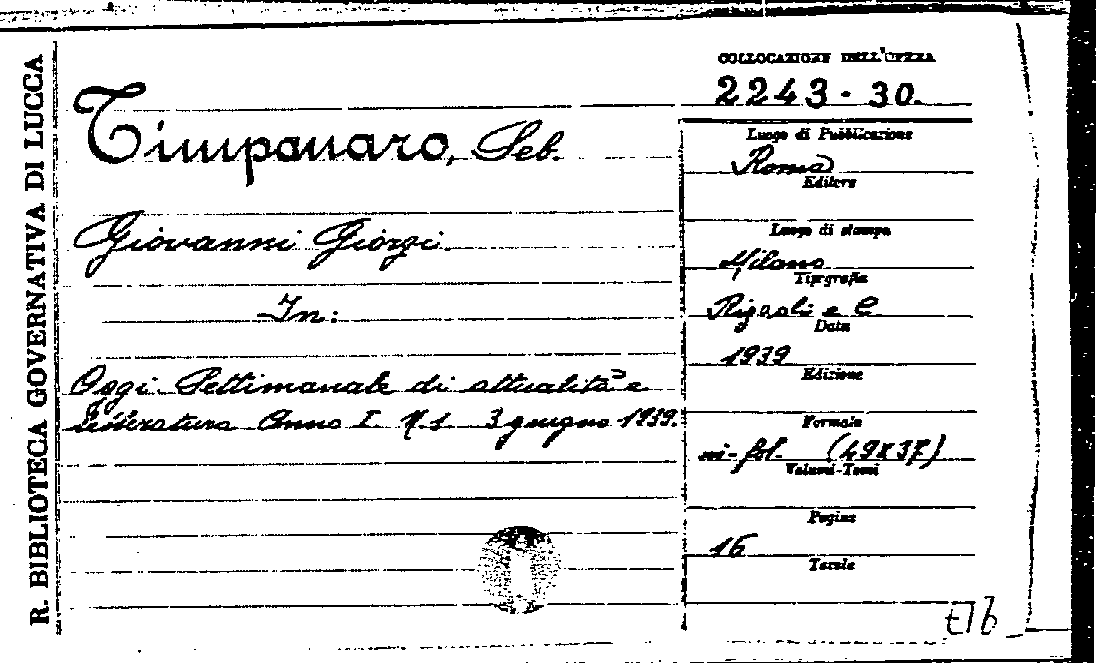 R. BIBLIOTECA GOVERNATIVA DI LUCCA
COLLOCAZIONE DELL'OPERA
2243 - 30.
Timpanaro, Seb.
Giovanni Giorgi.
In:
Oggi. Settimanale di attualità e
letteratura Anno I N. 1 3 giugno 1939.
Luogo di Pubblicazione
Roma
Editore
Luogo di stampa
Milano
Tipografia
Rizzoli e C
Data
1939
Edizione
Formato
in-fol. (49x37)
Volumi-Tomi
Pagine
16
Tavole